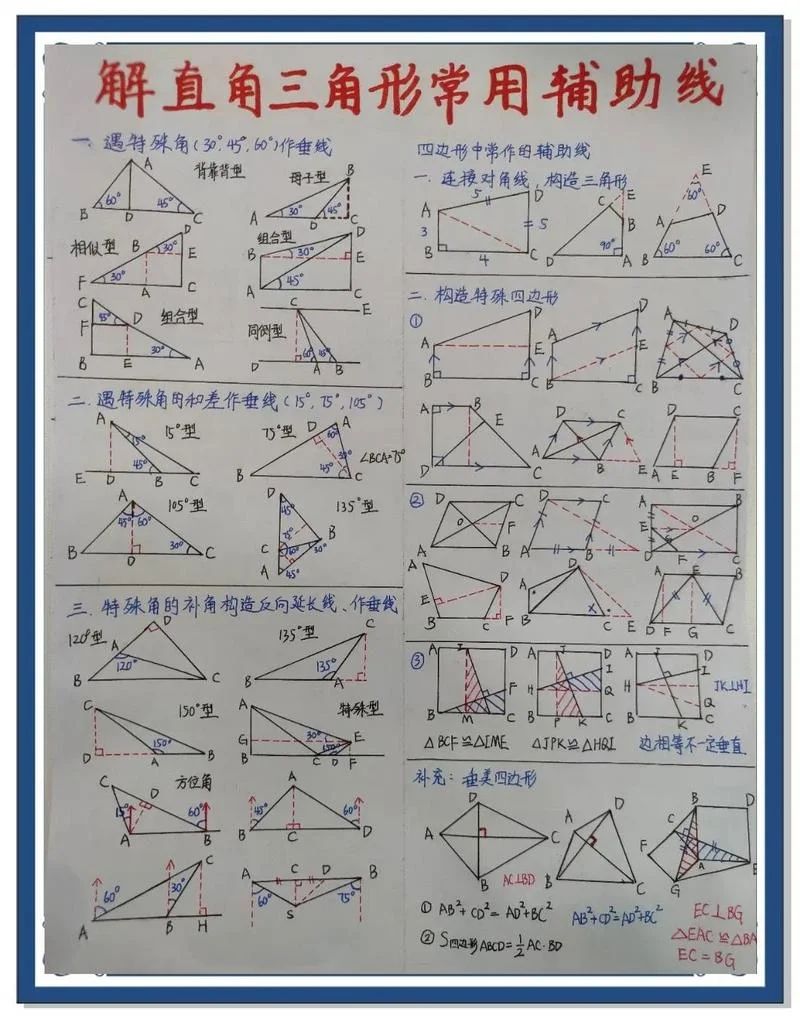 解直角三角形常用辅助线
一. 遇特殊角(30°,45°,60°)作垂线
背靠背型
母子型
相似型
组合型
组合型
同侧型
二. 遇特殊角的和差作垂线(15°,75°,105°)
15°型
75°型
∠BCA=75°
105°型
135°型
三. 特殊角的补角构造反向延长线、作垂线
120°型
135°型
150°型
特殊型
方位角
四边形中常作的辅助线
一. 连接对角线,构造三角形
二. 构造特殊四边形
①
②
③
△BCF≌△IME
△JPK≌△HQI
边相等不一定垂直
JK⊥HI
补充: 垂美四边形
AC⊥BD
① AB²+CD²=AD²+BC²
② S四边形ABCD=½AC·BD
AB²+CD²=AD²+BC²
EC⊥BG
△EAC≌△BA
EC=BG